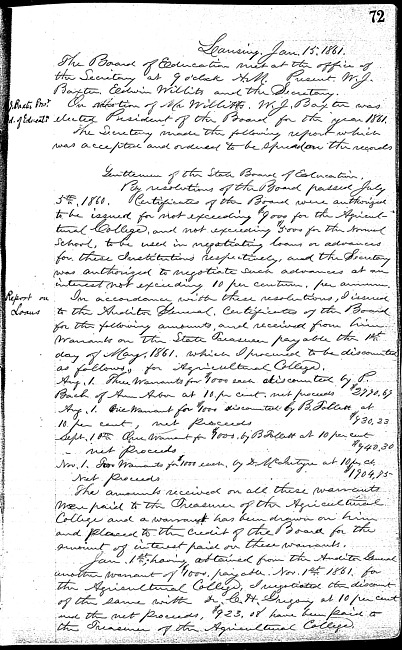 72
Lansing, Jan. 15, 1861.
The Board of Education met at the office of
the Secretary at 9 o'clock A.M. Present W.J.
Baxter, Edwin Willits and the Secretary.
On motion of Mr Willitts, W.J. Baxter was
elected President of the Board for the year 1861.
The Secretary made the following report which
was accepted and ordered to be spread on the records
Gentlemen of the State Board of Education,
By resolutions of the Board passed July
5th, 1860. Certificates of the Board were authorized
to be issued for not exceeding for the Agricul-
tural College, and not exceeding for the Normal
School, to be used in negotiating loans or advances
for these Institutions respectively, and the Secretary
was authorized to negotiate such advances at an
interest not exceeding 10 per centum, per annum.
Report on
Loans
In accordance with these resolutions, I issued
to the Auditor General, Certificates of the Board
for the following amounts, and received from him
Warrants on the State Treasurer payable the
day of May, 1861, which I procured to be discounted
as follows, for Agricultural College.
Aug. 1. Three Warrants for each discounted by P.
Bach of Ann Arbor at 10 per cent, net proceeds $2790.67
Aug. 1. One Warrant for discounted by B. Follett, at
10 per cent, net proceeds $930.23
Sept. 10th One Warrant for by B. Follett at 10 per cent
net proceeds $940.30
Nov. 1. Two Warrants for each, by D. McIntyre at 10 per ct.
Net proceeds $1904.75
The amounts received on all these warrants
were paid to the Treasurer of the Agricultural
College and a warrant has been drawn on him
and placed to the credit of the Board for the
amount of interest paid on these warrants.
Jan. 1st, having obtained from the Auditor General
another warrant of payable, Nov. 1st 1861, for
the Agricultural College, I negotiated the discount
of the same with C. H. at 10 per cent
and the net proceeds, $923.18 have been paid to
the Treasurer of the Agricultural College.